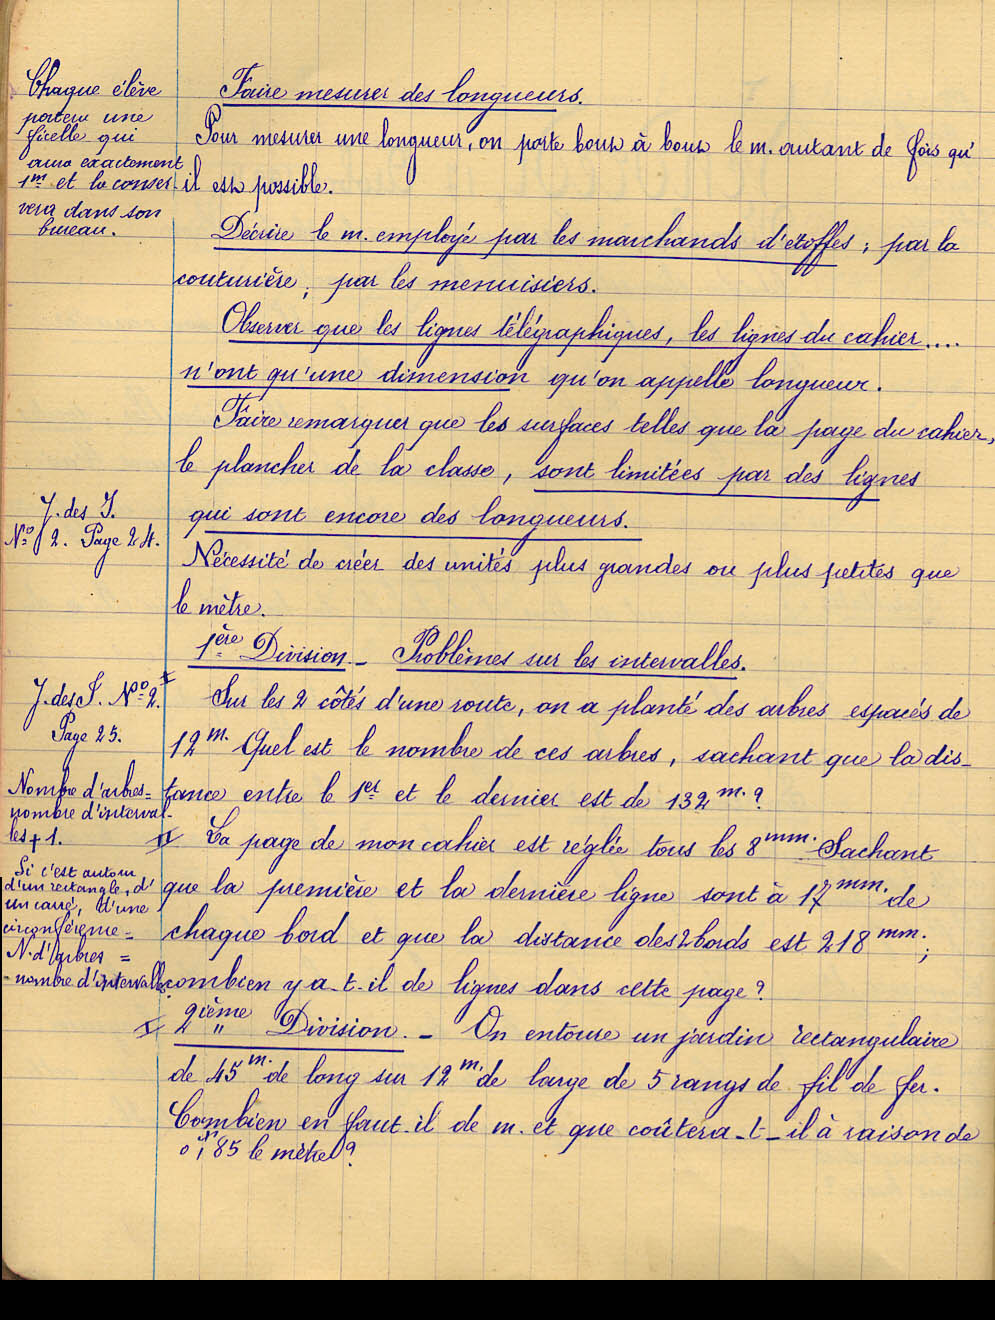 Chaque élève
portera une
ficelle qui
aura exactement
1m et la conser-
vera dans son
bureau.
Faire mesurer des longueurs.
Pour mesurer une longueur, on porte bout à bout le m. autant de fois qu'
il est possible.
Décrire le m. employé par les marchands d'étoffes ; par la
couturière ; par les menuisiers.
Observer que les lignes télégraphiques, les lignes du cahier....
n'ont qu'une dimension qu'on appelle longueur.
Faire remarquer que les surfaces telles que la page du cahier,
le plancher de la classe, sont limitées par des lignes
qui sont encore des longueurs.
J. des I.
No 2. Page 24.
Nécessité de créer des unités plus grandes ou plus petites que
le mètre.
1ère Division. - Problèmes sur les intervalles.
J. des I. No 2.
Page 25.
I Sur les 2 côtés d'une route, on a planté des arbres espacés de
12 m. Quel est le nombre de ces arbres, sachant que la dis-
tance entre le 1er et le dernier est de 132 m. ?
Nombre d'arbres =
nombre d'interval-
les + 1.
II La page de mon cahier est réglée tous les 8 mm. Sachant
que la première et la dernière ligne sont à 17 mm. de
chaque bord et que la distance des 2 bords est 218 mm. ;
combien y a-t-il de lignes dans cette page ?
Si c'est autour
d'un rectangle, d'
un carré, d'une
circonférence =
N. d'arbres =
= nombre d'intervalles
I 2ième Division. - On entoure un jardin rectangulaire
de 45 m. de long sur 12 m. de large de 5 rangs de fil de fer.
Combien en faut-il de m. et que coûtera-t-il à raison de
0f,85 le mètre ?